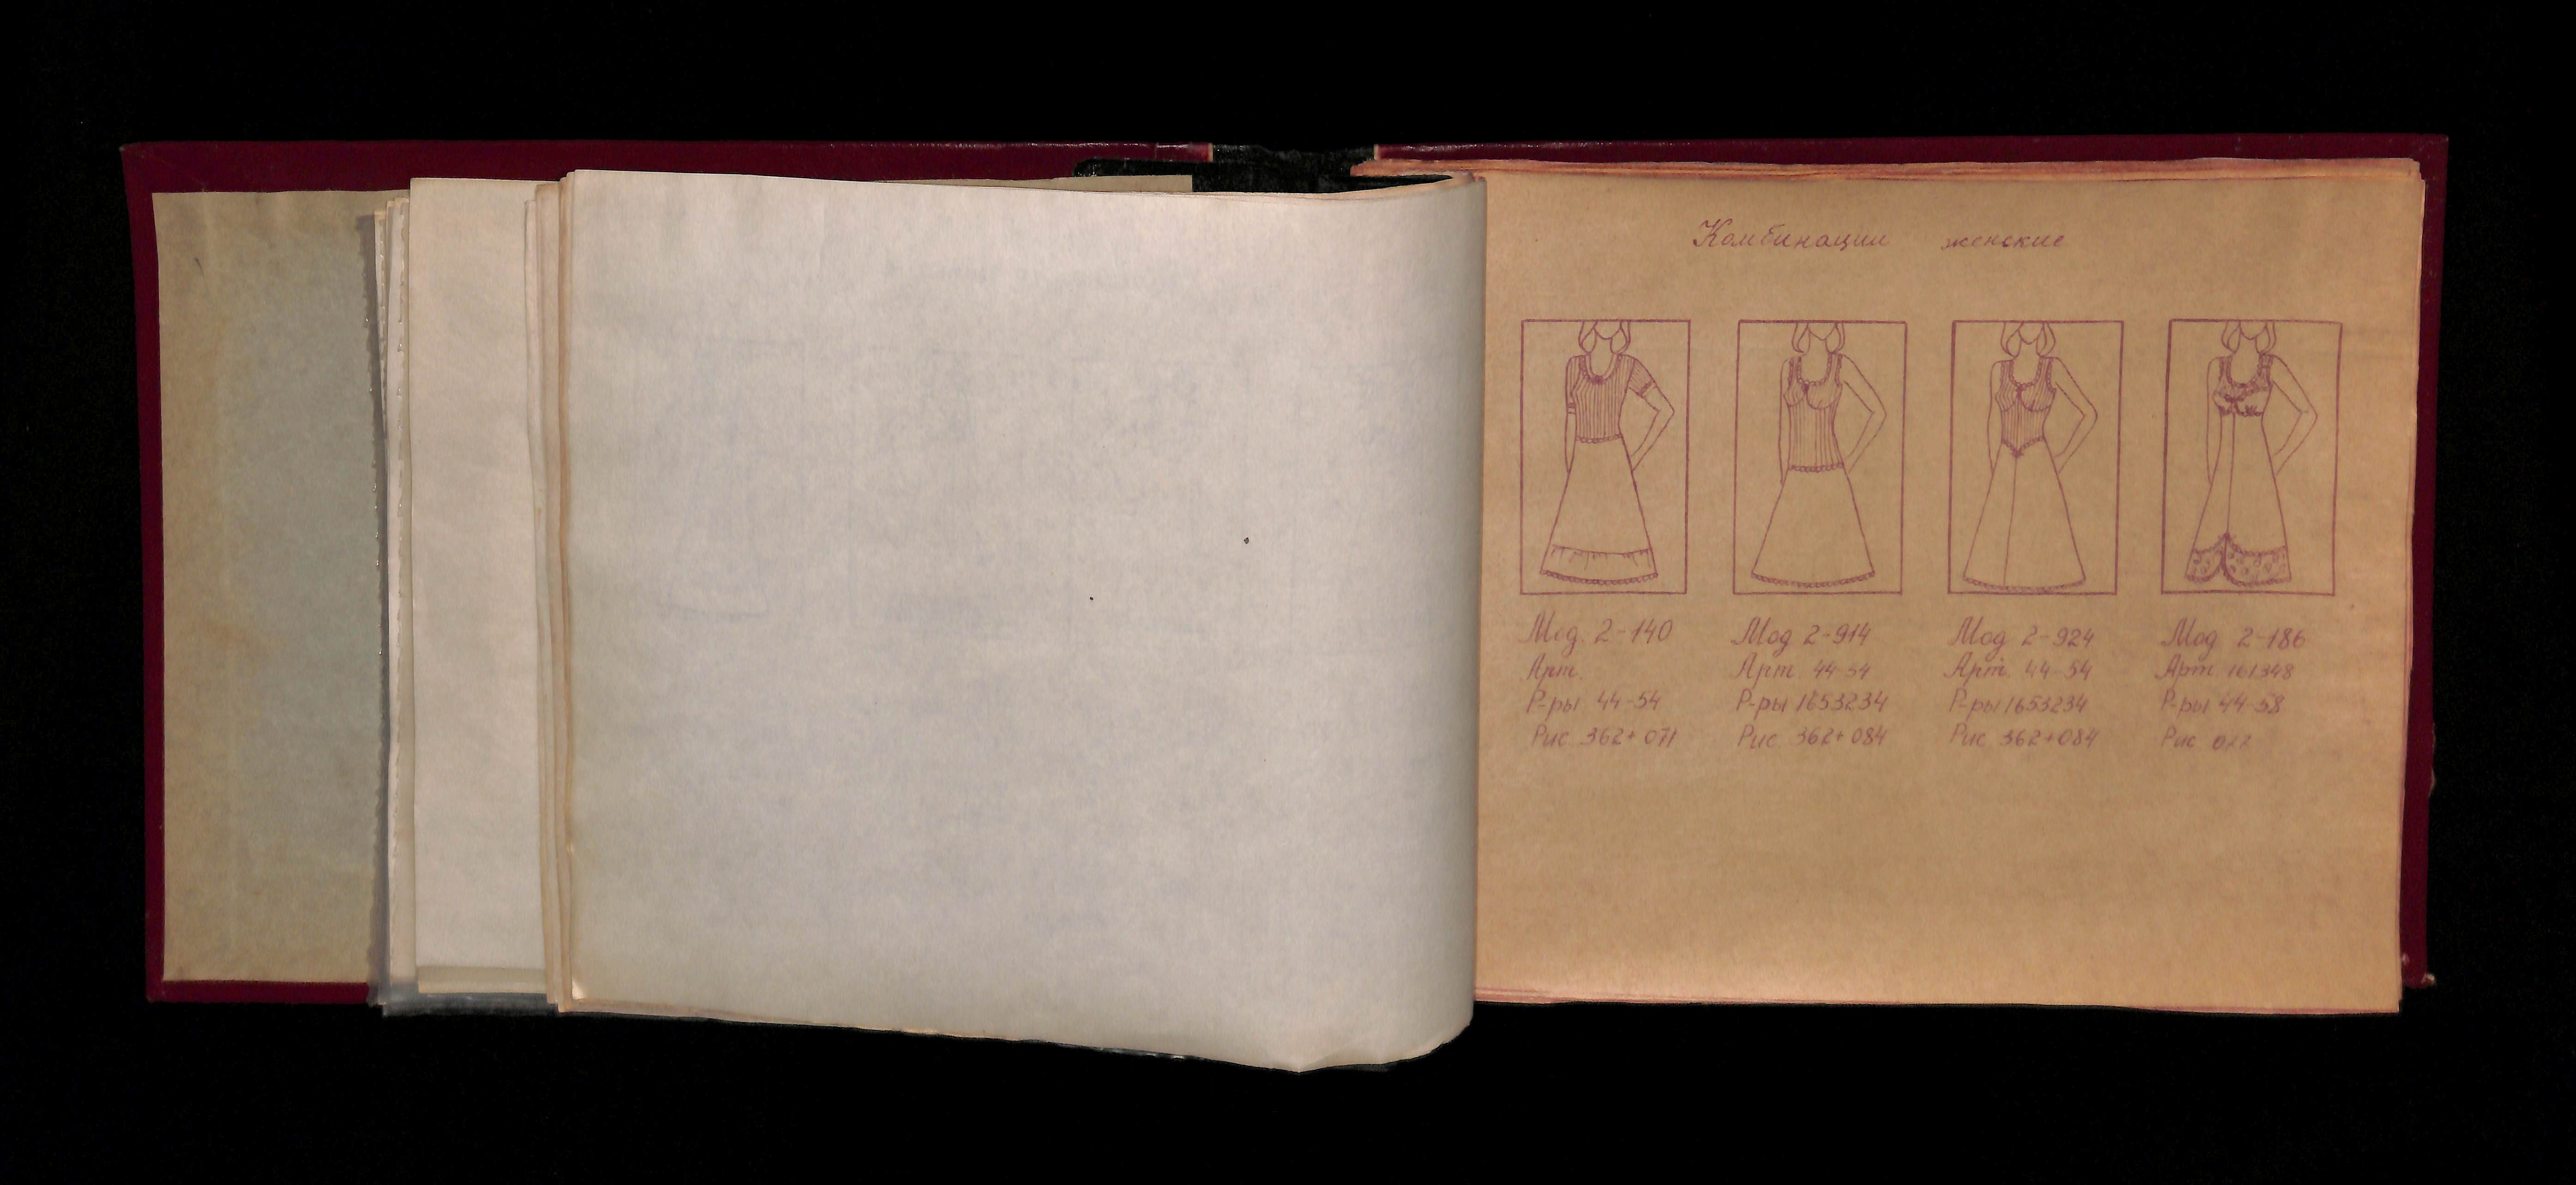 Комбинации женские
Мод. 2-140
Арт.
Р-ры 44-54
Рис 362+071
Мод 2-914
Арт. 44-54
Р-ры 1653234
Рис 362+084
Мод 2-924
Арт. 44-54
Р-ры 1653234
Рис 362+084
Мод 2-186
Арт 161348
Р-ры 44-58
Рис